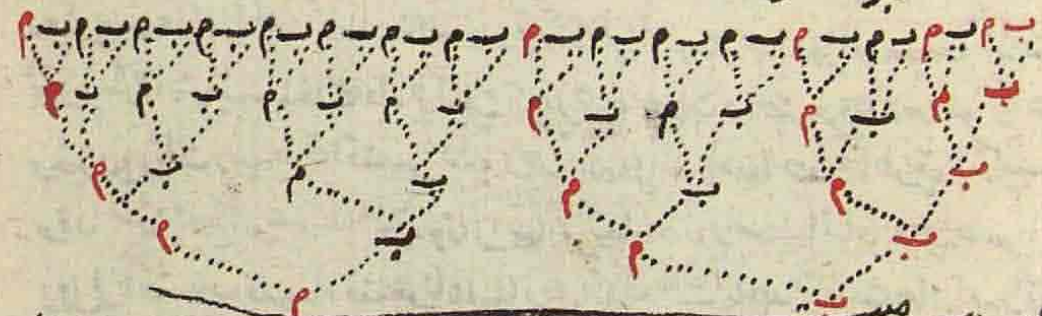 ب م ب م ب م ب م ب م ب م ب م ب م ب م ب م ب م ب م ب م ب م ب م ب م
ب م ب م ب م ب م ب م ب م ب م ب م
ب م ب م ب م ب م
ب م ب م
ب م